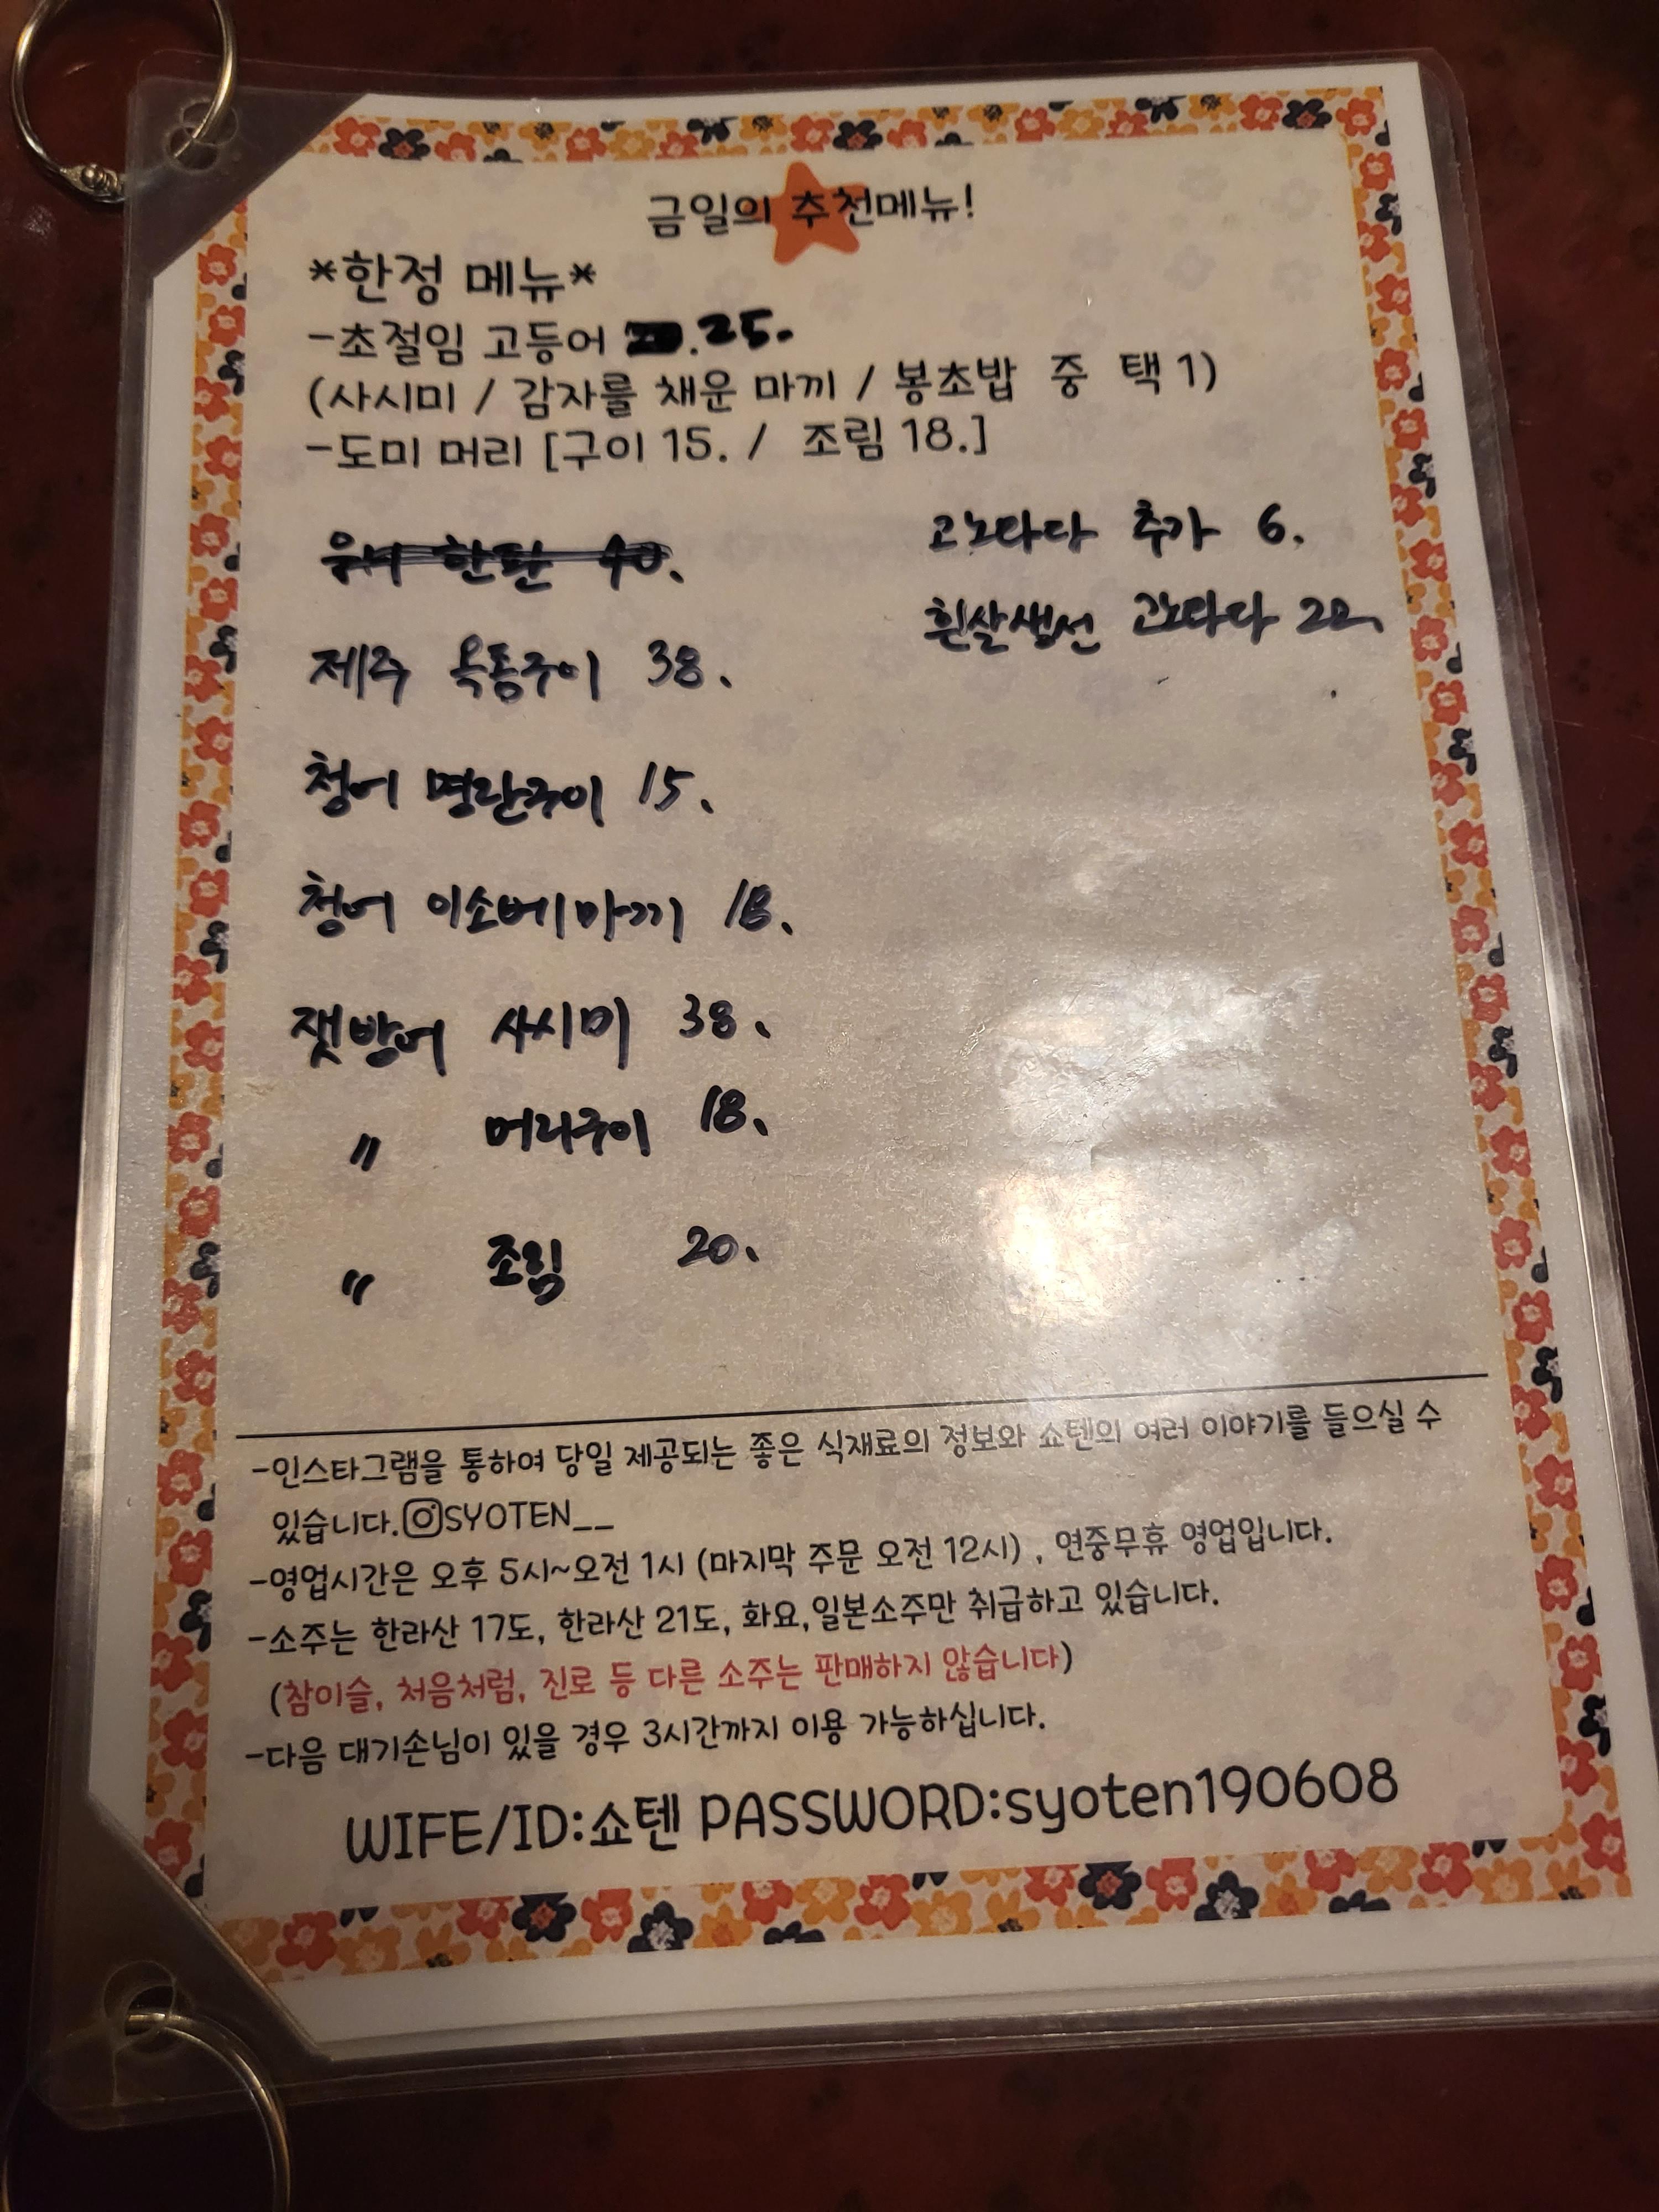 금일의 추천메뉴!
*한정 메뉴*
-초절임 고등어 25.
(사시미 / 감자를 채운 마끼 / 봉초밥 중 택1)
-도미 머리 [구이 15. / 조림 18.]
우니 한판 40.
제주 옥돔구이 38.
청어 명란구이 15.
청어 이소베마끼 18.
잿방어 사시미 38.
〃 머리구이 18.
〃 조림 20.
고노와다 추가 6.
흰살생선 고노와다 22.
-인스타그램을 통하여 당일 제공되는 좋은 식재료의 정보와 쇼텐의 여러 이야기를 들으실 수
있습니다.SYOTEN__
-영업시간은 오후 5시~오전 1시 (마지막 주문 오전 12시) , 연중무휴 영업입니다.
-소주는 한라산 17도, 한라산 21도, 화요,일본소주만 취급하고 있습니다.
(참이슬, 처음처럼, 진로 등 다른 소주는 판매하지 않습니다)
-다음 대기손님이 있을 경우 3시간까지 이용 가능하십니다.
WIFE/ID:쇼텐 PASSWORD:syoten190608